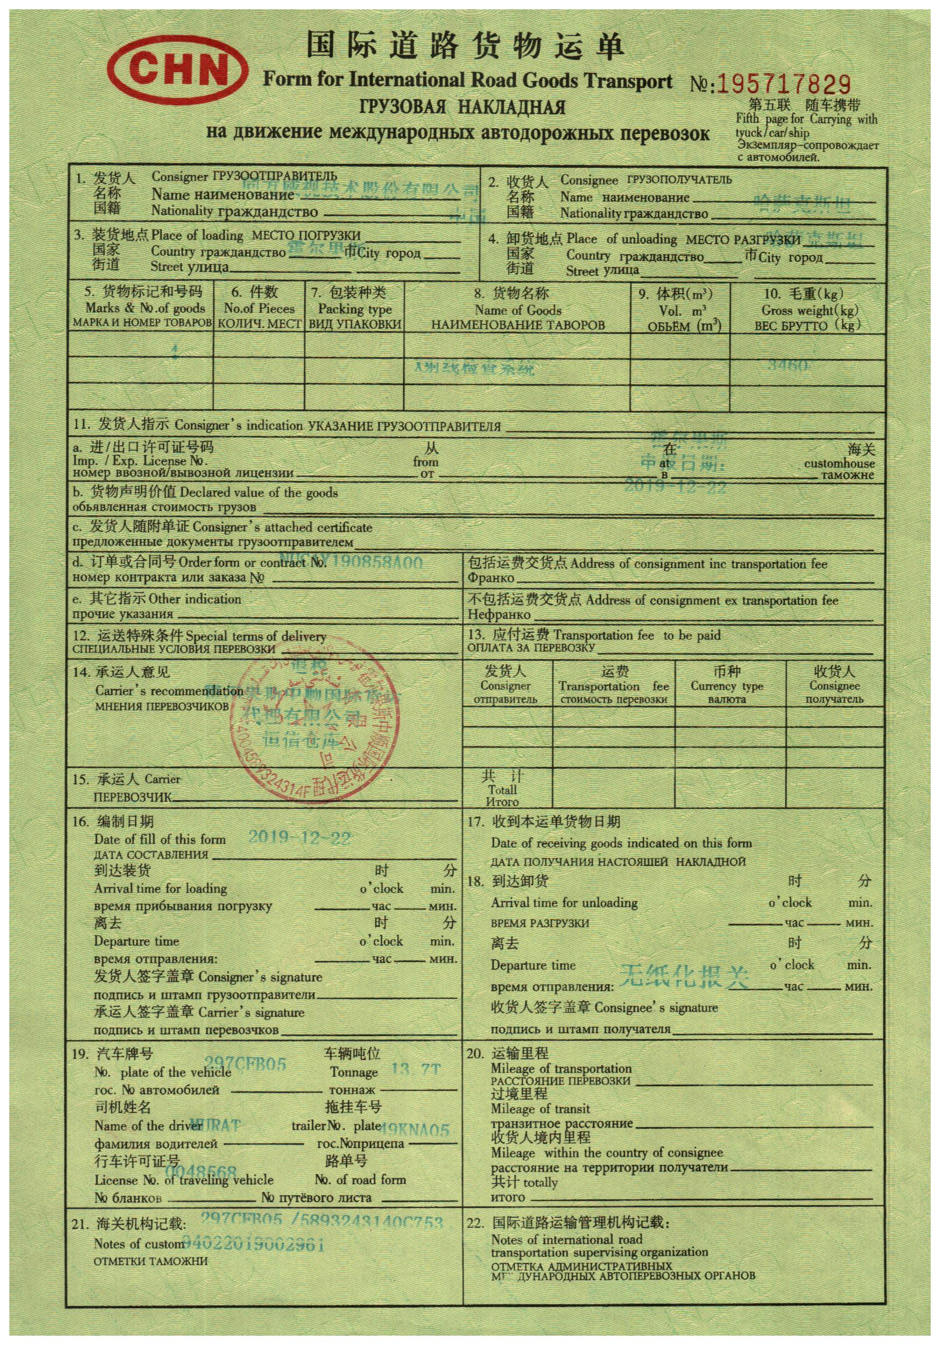 CHN
国际道路货物运单
Form for International Road Goods Transport №:195717829
ГРУЗОВАЯ НАКЛАДНАЯ
на движение международных автодорожных перевозок
第五联 随车携带
Fifth page for Carrying with
tyuck/car/ship
Экземпляр-сопровождает
с автомобилей.
1. 发货人 Consigner ГРУЗООТПРАВИТЕЛЬ
同方威视技术股份有限公司
名称 Name наименование
国籍 Nationality граждандство 中国
2. 收货人 Consignee ГРУЗОПОЛУЧАТЕЛЬ
名称 Name наименование 哈萨克斯坦
国籍 Nationality граждандство
3. 装货地点 Place of loading МЕСТО ПОГРУЗКИ
国家 Country граждандство 霍尔果斯 市City город
街道 Street улица
4. 卸货地点 Place of unloading МЕСТО РАЗГРУЗКИ 哈萨克斯坦
国家 Country граждандство 市City город
街道 Street улица
5. 货物标记和号码
Marks & №.of goods
МАРКА И НОМЕР ТОВАРОВ
6. 件数
No.of Pieces
КОЛИЧ. МЕСТ
7. 包装种类
Packing type
ВИД УПАКОВКИ
8. 货物名称
Name of Goods
НАИМЕНОВАНИЕ ТАВОРОВ
9. 体积(m³)
Vol. m³
ОБЬЁМ (m³)
10. 毛重(kg)
Gross weight(kg)
ВЕС БРУТТО (kg)
1
X射线检查系统 3460
11. 发货人指示 Consigner's indication УКАЗАНИЕ ГРУЗООТПРАВИТЕЛЯ
霍尔果斯
a. 进/出口许可证号码 从 在 海关
Imp. / Exp. License №. from at customhouse
номер ввозной/вывозной лицензии от в таможне
申报日期:
2019-12-22
b. 货物声明价值 Declared value of the goods
обьявленная стоимость грузов
c. 发货人随附单证 Consigner's attached certificate
предложенные документы грузоотправителем
d. 订单或合同号 Order form or contract №.
номер контракта или заказа №
包括运费交货点 Address of consignment inc transportation fee
Франко
e. 其它指示 Other indication
прочие указания
不包括运费交货点 Address of consignment ex transportation fee
Нефранко
12. 运送特殊条件 Special terms of delivery
СПЕЦИАЛЬНЫЕ УСЛОВИЯ ПЕРЕВОЗКИ
13. 应付运费 Transportation fee to be paid
ОПЛАТА ЗА ПЕРЕВОЗКУ
14. 承运人意见
Carrier's recommendation
МНЕНИЯ ПЕРЕВОЗЧИКОВ
果斯中顺国际货
代理有限公司
恒信仓库
发货人
Consigner
отправитель
运费
Transportation fee
стоимость перевозки
币种
Currency type
валюта
收货人
Consignee
получатель
15. 承运人 Carrier
ПЕРЕВОЗЧИК
共 计
Totall
Итого
16. 编制日期
Date of fill of this form 2019-12-22
ДАТА СОСТАВЛЕНИЯ
到达装货 时 分
Arrival time for loading o'clock min.
время прибывания погрузку час мин.
离去 时 分
Departure time o'clock min.
время отправления: час мин.
发货人签字盖章 Consigner's signature
подпись и штамп грузоотправители
承运人签字盖章 Carrier's signature
подпись и штамп перевозчков
17. 收到本运单货物日期
Date of receiving goods indicated on this form
ДАТА ПОЛУЧАНИЯ НАСТОЯШЕЙ НАКЛАДНОЙ
18. 到达卸货 时 分
Arrival time for unloading o'clock min.
ВРЕМЯ РАЗГРУЗКИ час мин.
离去 时 分
Departure time o'clock min.
无纸化报关
время отправления: час мин.
收货人签字盖章 Consignee's signature
подпись и штамп получателя
19. 汽车牌号 车辆吨位
№. plate of the vehicle 297CFB05 Tonnage 13.7T
гос. № автомобилей тоннаж
司机姓名 拖挂车号
Name of the driver MURAT trailer№. plate 49KNA05
фамилия водителей гос.№прицепа
行车许可证号 路单号
0048568
License №. of traveling vehicle №. of road form
№ бланков № путёвого листа
20. 运输里程
Mileage of transportation
РАССТОЯНИЕ ПЕРЕВОЗКИ
过境里程
Mileage of transit
транзитное расстояние
收货人境内里程
Mileage within the country of consignee
расстояние на территории получатели
共计 totally
итого
21. 海关机构记载: 297CFB05 /5893243140C753
Notes of custom 94022019002961
ОТМЕТКИ ТАМОЖНИ
22. 国际道路运输管理机构记载:
Notes of international road
transportation supervising organization
ОТМЕТКА АДМИНИСТРАТИВНЫХ
ДУНАРОДНЫХ АВТОПЕРЕВОЗНЫХ ОРГАНОВ